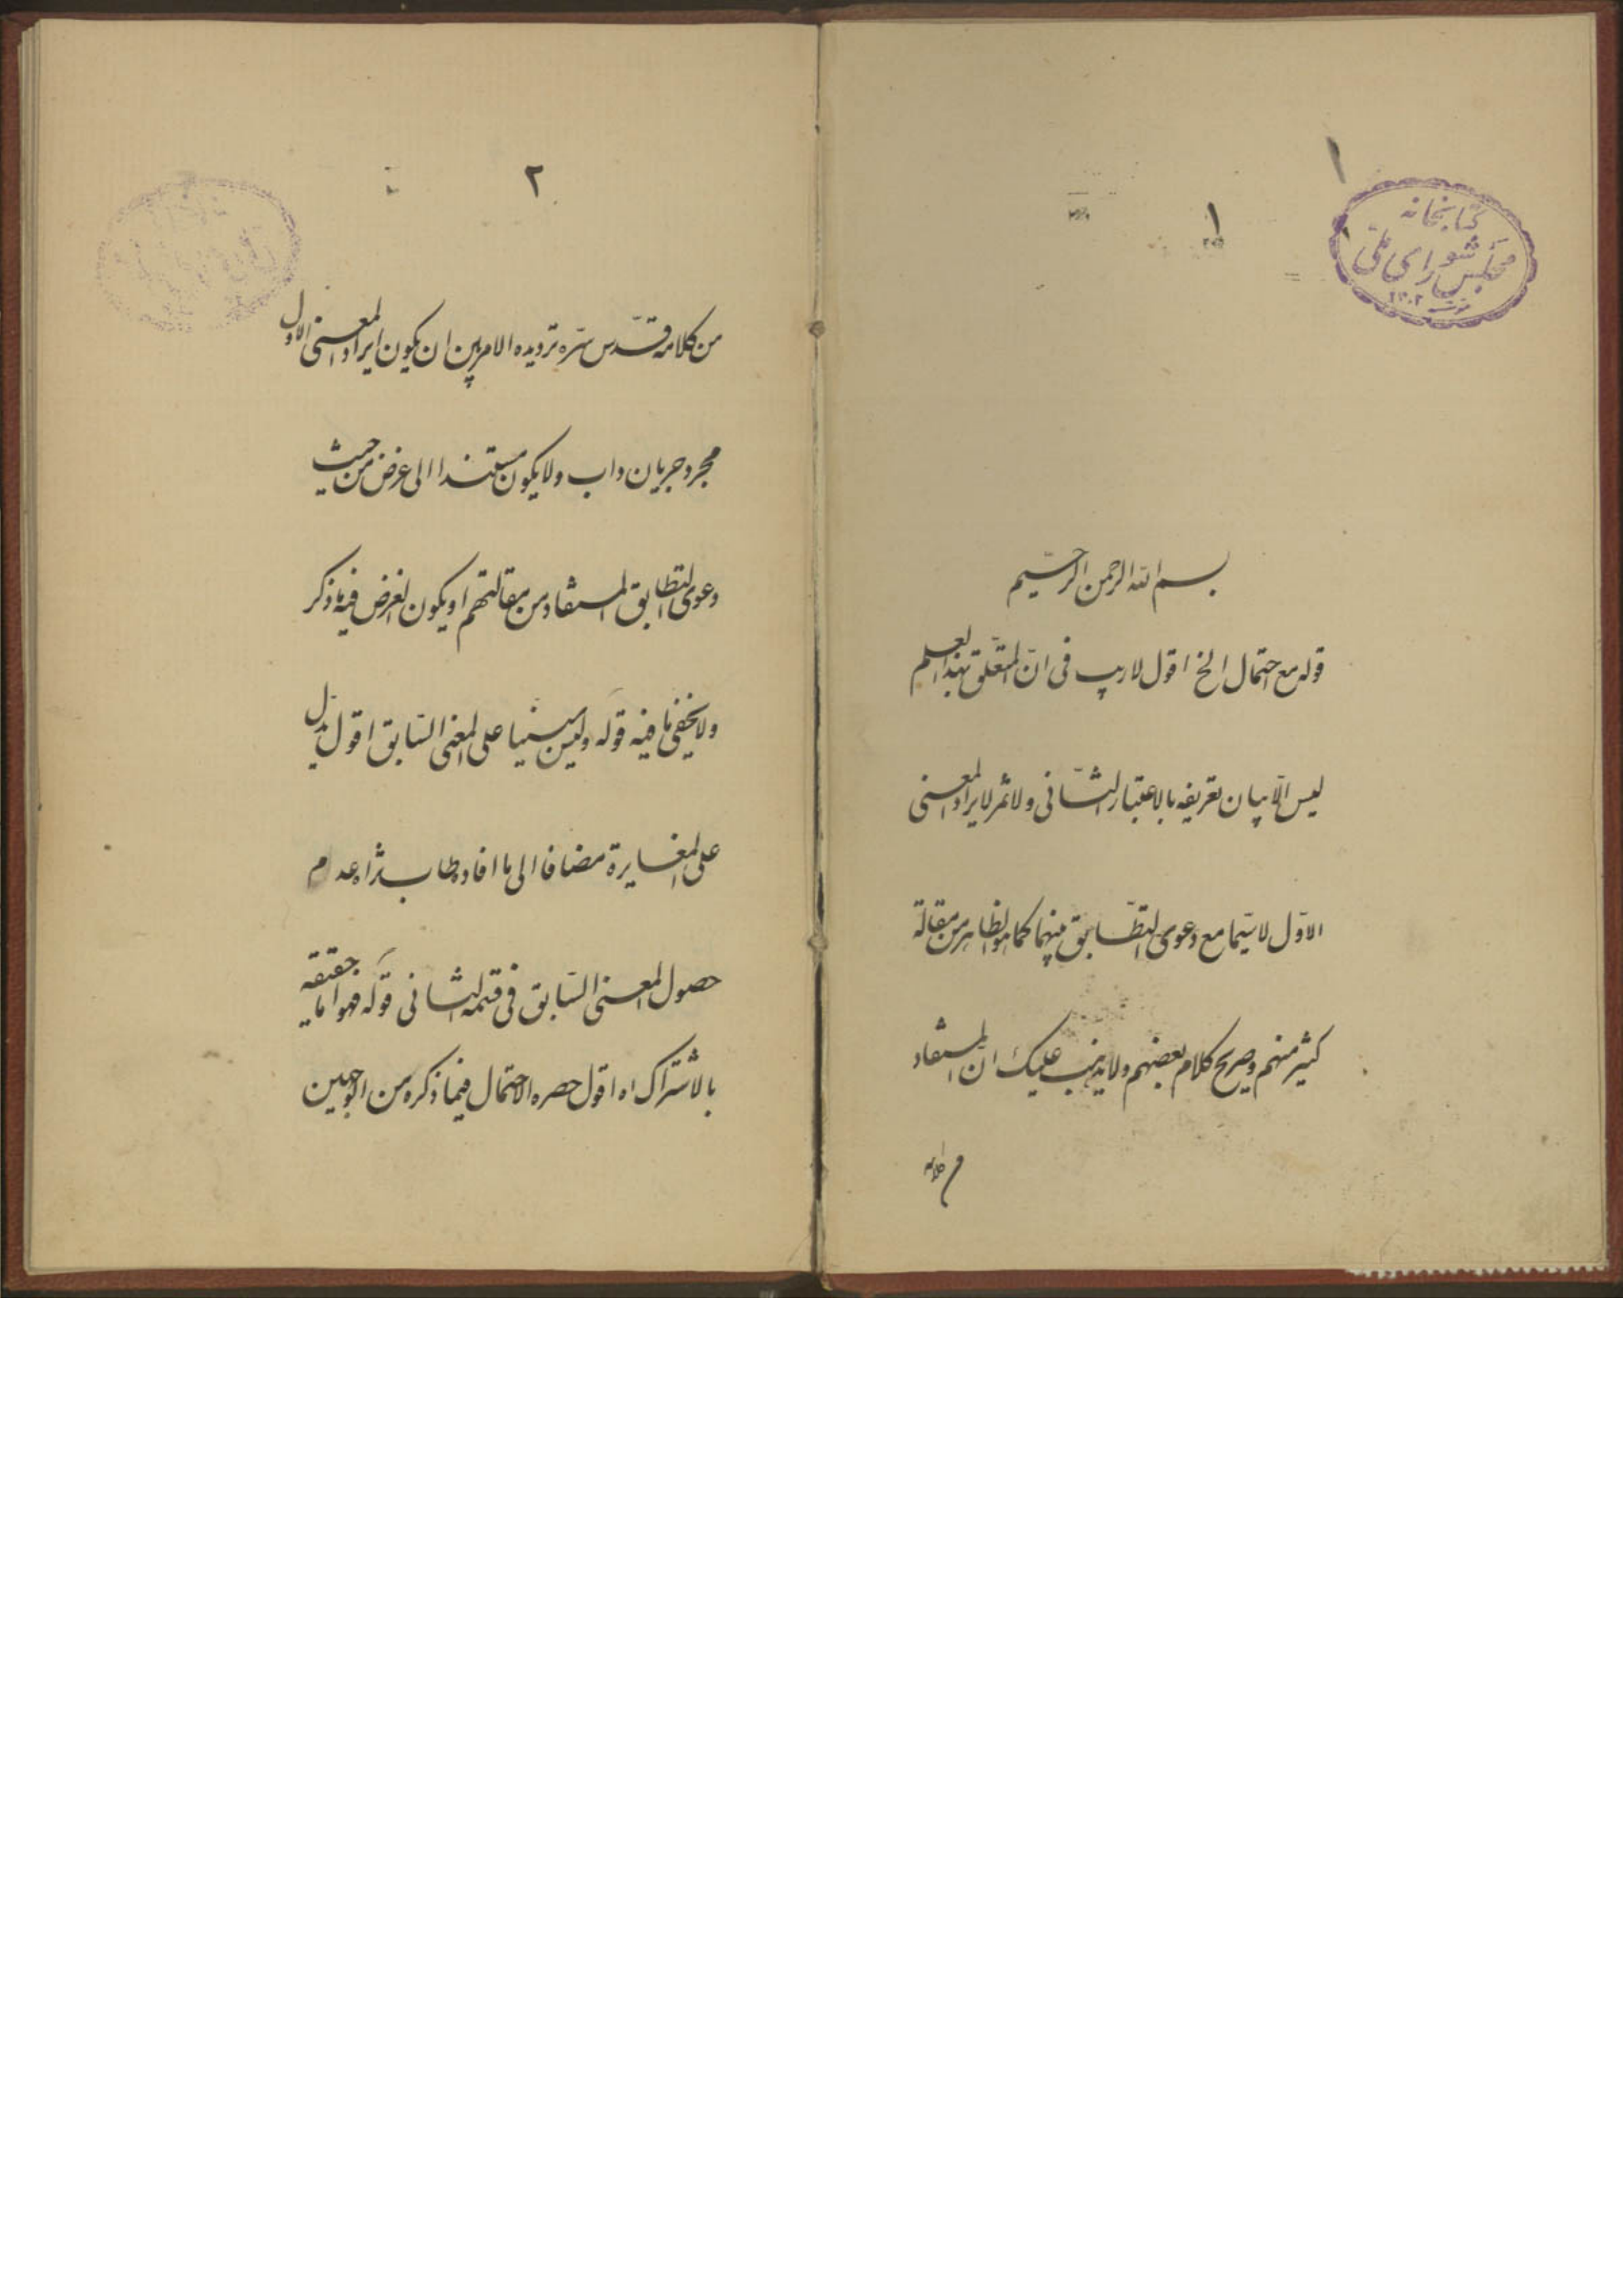 ١
١
کتابخانه
مجلس شورای ملی
بسم الله الرحمن الرحیم
قوله مع احتمال الخ اقول لا ریب فی انّ المتعلق بهذا العلم
لیس الّا بیان تعریفه بالاعتبار الثّانی ولا ثمر لایراد المعنی
الاوّل لا سیّما مع دعوی التطّابق بینهما کما هو الظاهر من مقالة
کثیر منهم و صریح کلام بعضهم ولا یذهب علیک انّ المستفاد
من کلامه
٢
من کلامه قدّس سرّه تردیده الامر بین ان یکون ایراد المعنی الاول
مجرد جریان داب ولا یکون مستندا الی غرض من حیث
دعوی التطابق المستفاد من مقالتهم او یکون الغرض فیه ما ذکر
ولا یخفی ما فیه قوله ولیس مبنیا علی المعنی السّابق اقول یدلّ
علی المغایرة مضافا الی ما افاد طاب ثراه عدم
حصول المعنی السّابق فی قسمه الثانی قوله فهو اما حقیقه
بالاشتراک اه اقول حصره الاحتمال فیما ذکره من الوجهین